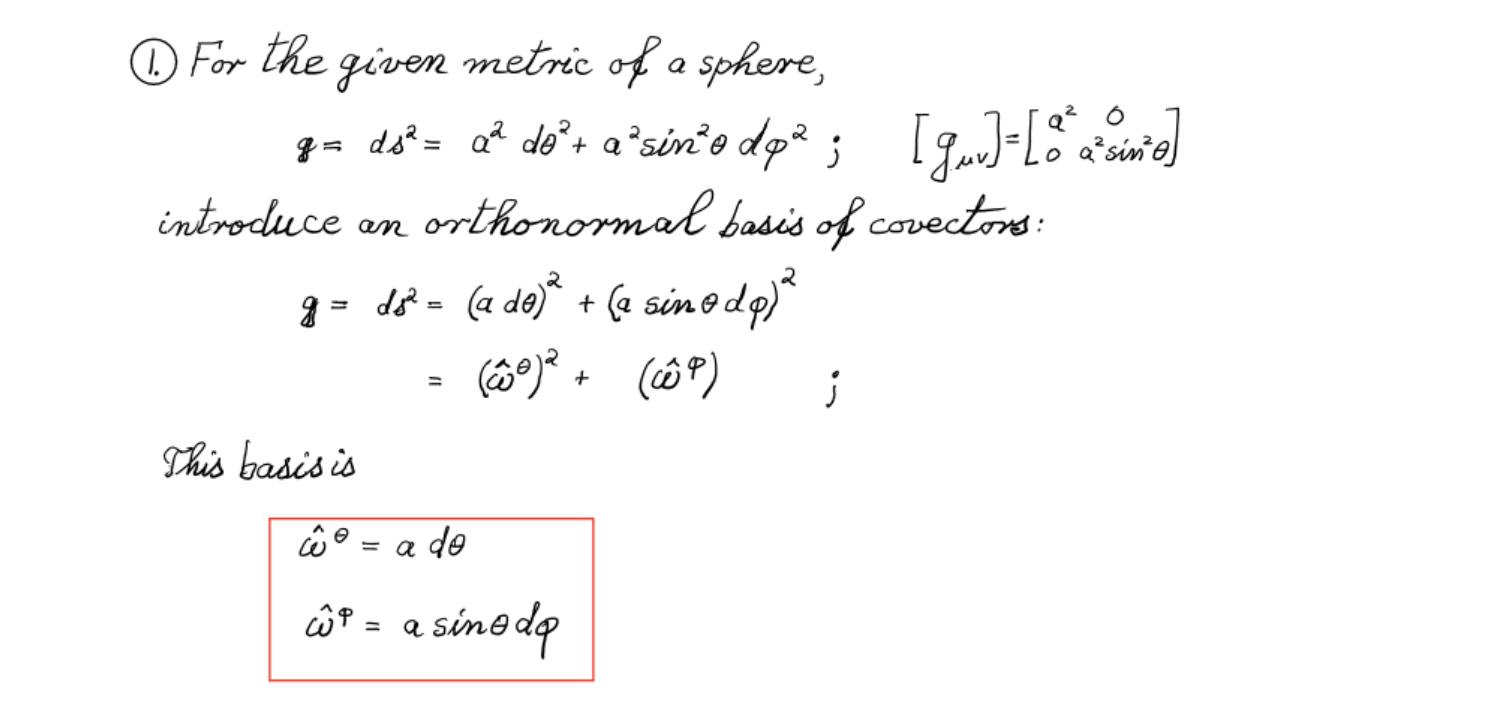 ① For the given metric of a sphere,
g = ds² = a² dθ² + a² sin²θ dφ² ; [gμν] = [a² 0
0 a² sin²θ]
introduce an orthonormal basis of covectors:
g = ds² = (a dθ)² + (a sinθ dφ)²
= (ω̂^θ)² + (ω̂^φ) ;
This basis is
ω̂^θ = a dθ
ω̂^φ = a sinθ dφ